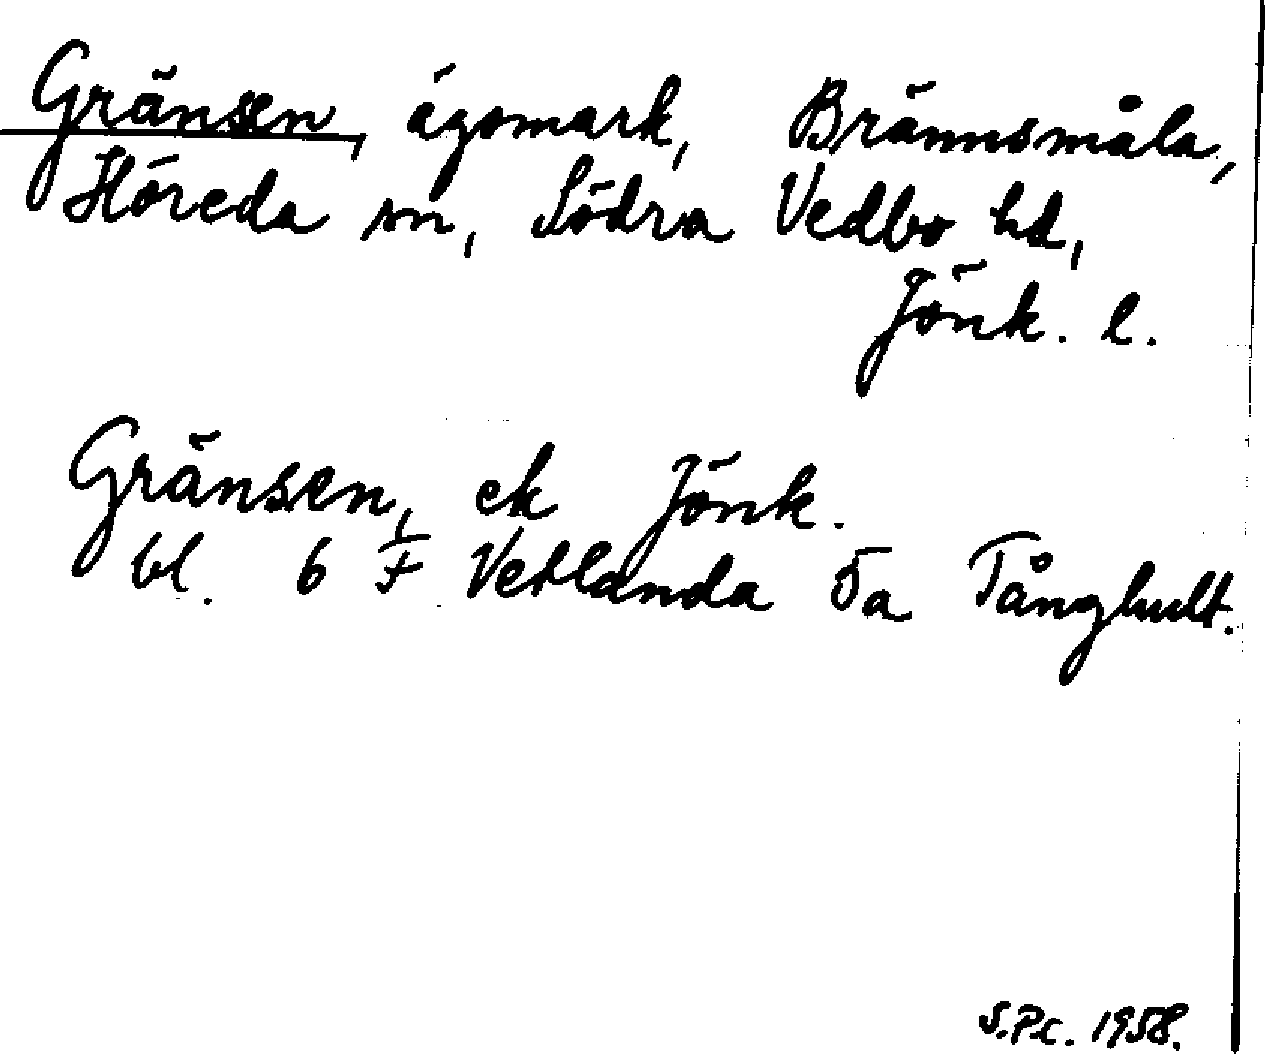 Gränsen, ägomark, Brännsmåla,
Höreda sn, Södra Vedbo hd,
Jönk. l.
Gränsen, ek Jönk.
bl. 6 F Vetlanda 5a Tånghult.
S.P.c. 1958.